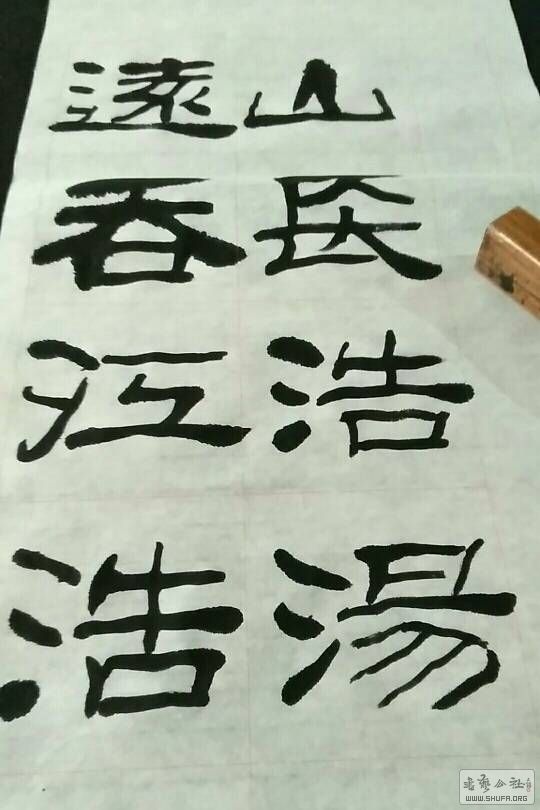 遠山
吞長
江浩
浩湯
書藝公社
WWW.SHUFA.ORG